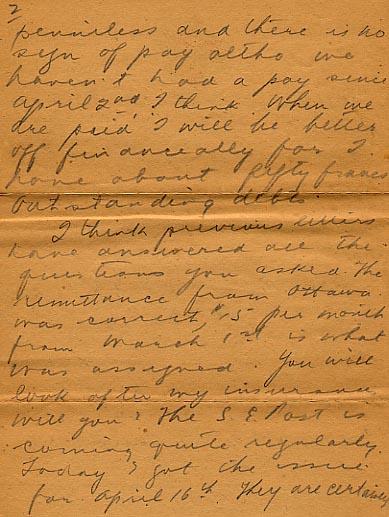 2
penniless and there is no
sign of pay altho we
haven't had a pay since
april 2nd, I think. When we
are paid I will be better
off financeally for I
have about fifty francs
outstanding debts.
I think previous letters
have answered all the
questions you asked. The
remittance from Ottawa
was correct, $15 per month
from March 1st is what
was assigned. You will
look after my insurance
will you? The S. E. Post is
coming quite regularly.
Today I got the issue
for april 16th. They are certainly